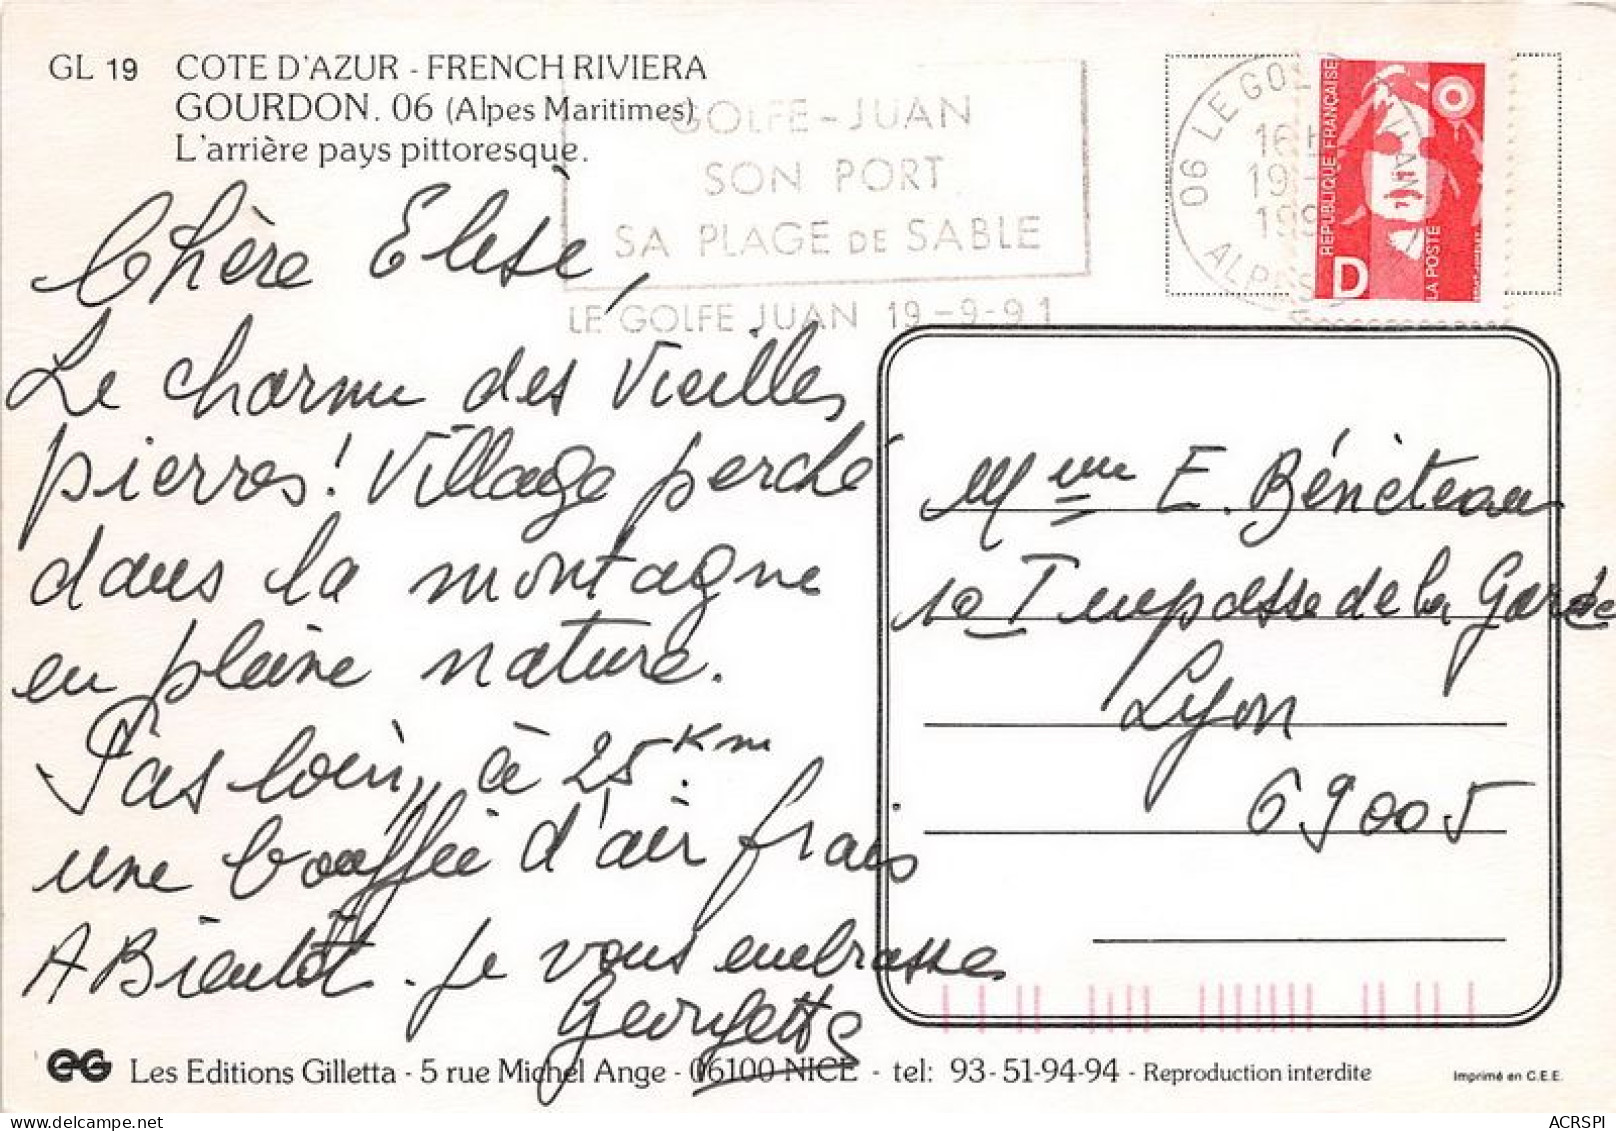 GL 19 COTE D'AZUR - FRENCH RIVIERA
GOURDON. 06 (Alpes Maritimes)
L'arrière pays pittoresque.
GOLFE-JUAN
SON PORT
SA PLAGE DE SABLE
LE GOLFE JUAN 19-9-91
06 LE GOLFE JUAN
16H
19-
199
ALPES
RÉPUBLIQUE FRANÇAISE
LA POSTE
D
Chère Elise,
Le charme des Vieilles
pierres! Village perché
dans la montagne
en pleine nature.
Pas loin, à 25 Km.
une bouffée d'air frais
A Bientôt. je vous embrasse
Georgette
Mme E. Bénéteau
10 Impasse de la Garde
Lyon
69005
Les Editions Gilletta - 5 rue Michel Ange - 06100 NICE - tel: 93-51-94-94 - Reproduction interdite
Imprimé en C.E.E.
ACRSPI